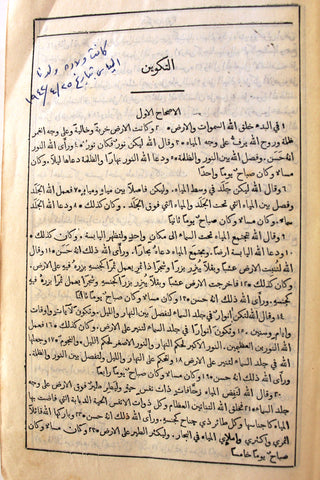 كانت ولادة ولدنا
الياس بتاريخ ٢٥/٤/١٩٤٦
التكوين
الاصحاح الاول
١ في البدء خلق الله السموات والارض ٢ وكانت الارض خربة وخالية وعلى وجه الغمر
ظلمة وروح الله يرف على وجه المياه ٣ وقال الله ليكن نور فكان نور ٤ ورأى الله النور
انه حسن وفصل الله بين النور والظلمة ٥ ودعا الله النور نهارا والظلمة دعاها ليلا وكان
مساء وكان صباح يوما واحدا
٦ وقال الله ليكن جلد في وسط المياه وليكن فاصلا بين مياه ومياه ٧ فعمل الله الجلد
وفصل بين المياه التي تحت الجلد والمياه التي فوق الجلد وكان كذلك ٨ ودعا الله الجلد
سماء وكان مساء وكان صباح يوما ثانيا
٩ وقال الله لتجتمع المياه تحت السماء الى مكان واحد ولتظهر اليابسة وكان كذلك
١٠ ودعا الله اليابسة ارضا ومجتمع المياه دعاه بحارا ورأى الله ذلك انه حسن ١١ وقال
الله لتنبت الارض عشبا وبقلا يبزر بزرا وشجرا ذا ثمر يعمل ثمرا كجنسه بزره فيه على الارض
وكان كذلك ١٢ فاخرجت الارض عشبا وبقلا يبزر بزرا كجنسه وشجرا يعمل ثمرا بزره فيه
كجنسه ورأى الله ذلك انه حسن ١٣ وكان مساء وكان صباح يوما ثالثا
١٤ وقال الله لتكن انوار في جلد السماء لتفصل بين النهار والليل وتكون لآيات واوقات
وايام وسنين ١٥ وتكون انوارا في جلد السماء لتنير على الارض وكان كذلك ١٦ فعمل
الله النورين العظيمين النور الاكبر لحكم النهار والنور الاصغر لحكم الليل والنجوم ١٧ وجعلها
الله في جلد السماء لتنير على الارض ١٨ ولتحكم على النهار والليل ولتفصل بين النور والظلمة
ورأى الله ذلك انه حسن ١٩ وكان مساء وكان صباح يوما رابعا
٢٠ وقال الله لتفض المياه زحافات ذات نفس حية وليطر طير فوق الارض على وجه
جلد السماء ٢١ فخلق الله التنانين العظام وكل ذوات الانفس الحية الدبابة التي فاضت بها
المياه كاجناسها وكل طائر ذي جناح كجنسه ورأى الله ذلك انه حسن ٢٢ وباركها الله قائلا
اثمري واكثري واملإي المياه في البحار وليكثر الطير على الارض ٢٣ وكان مساء وكان
صباح يوما خامسا